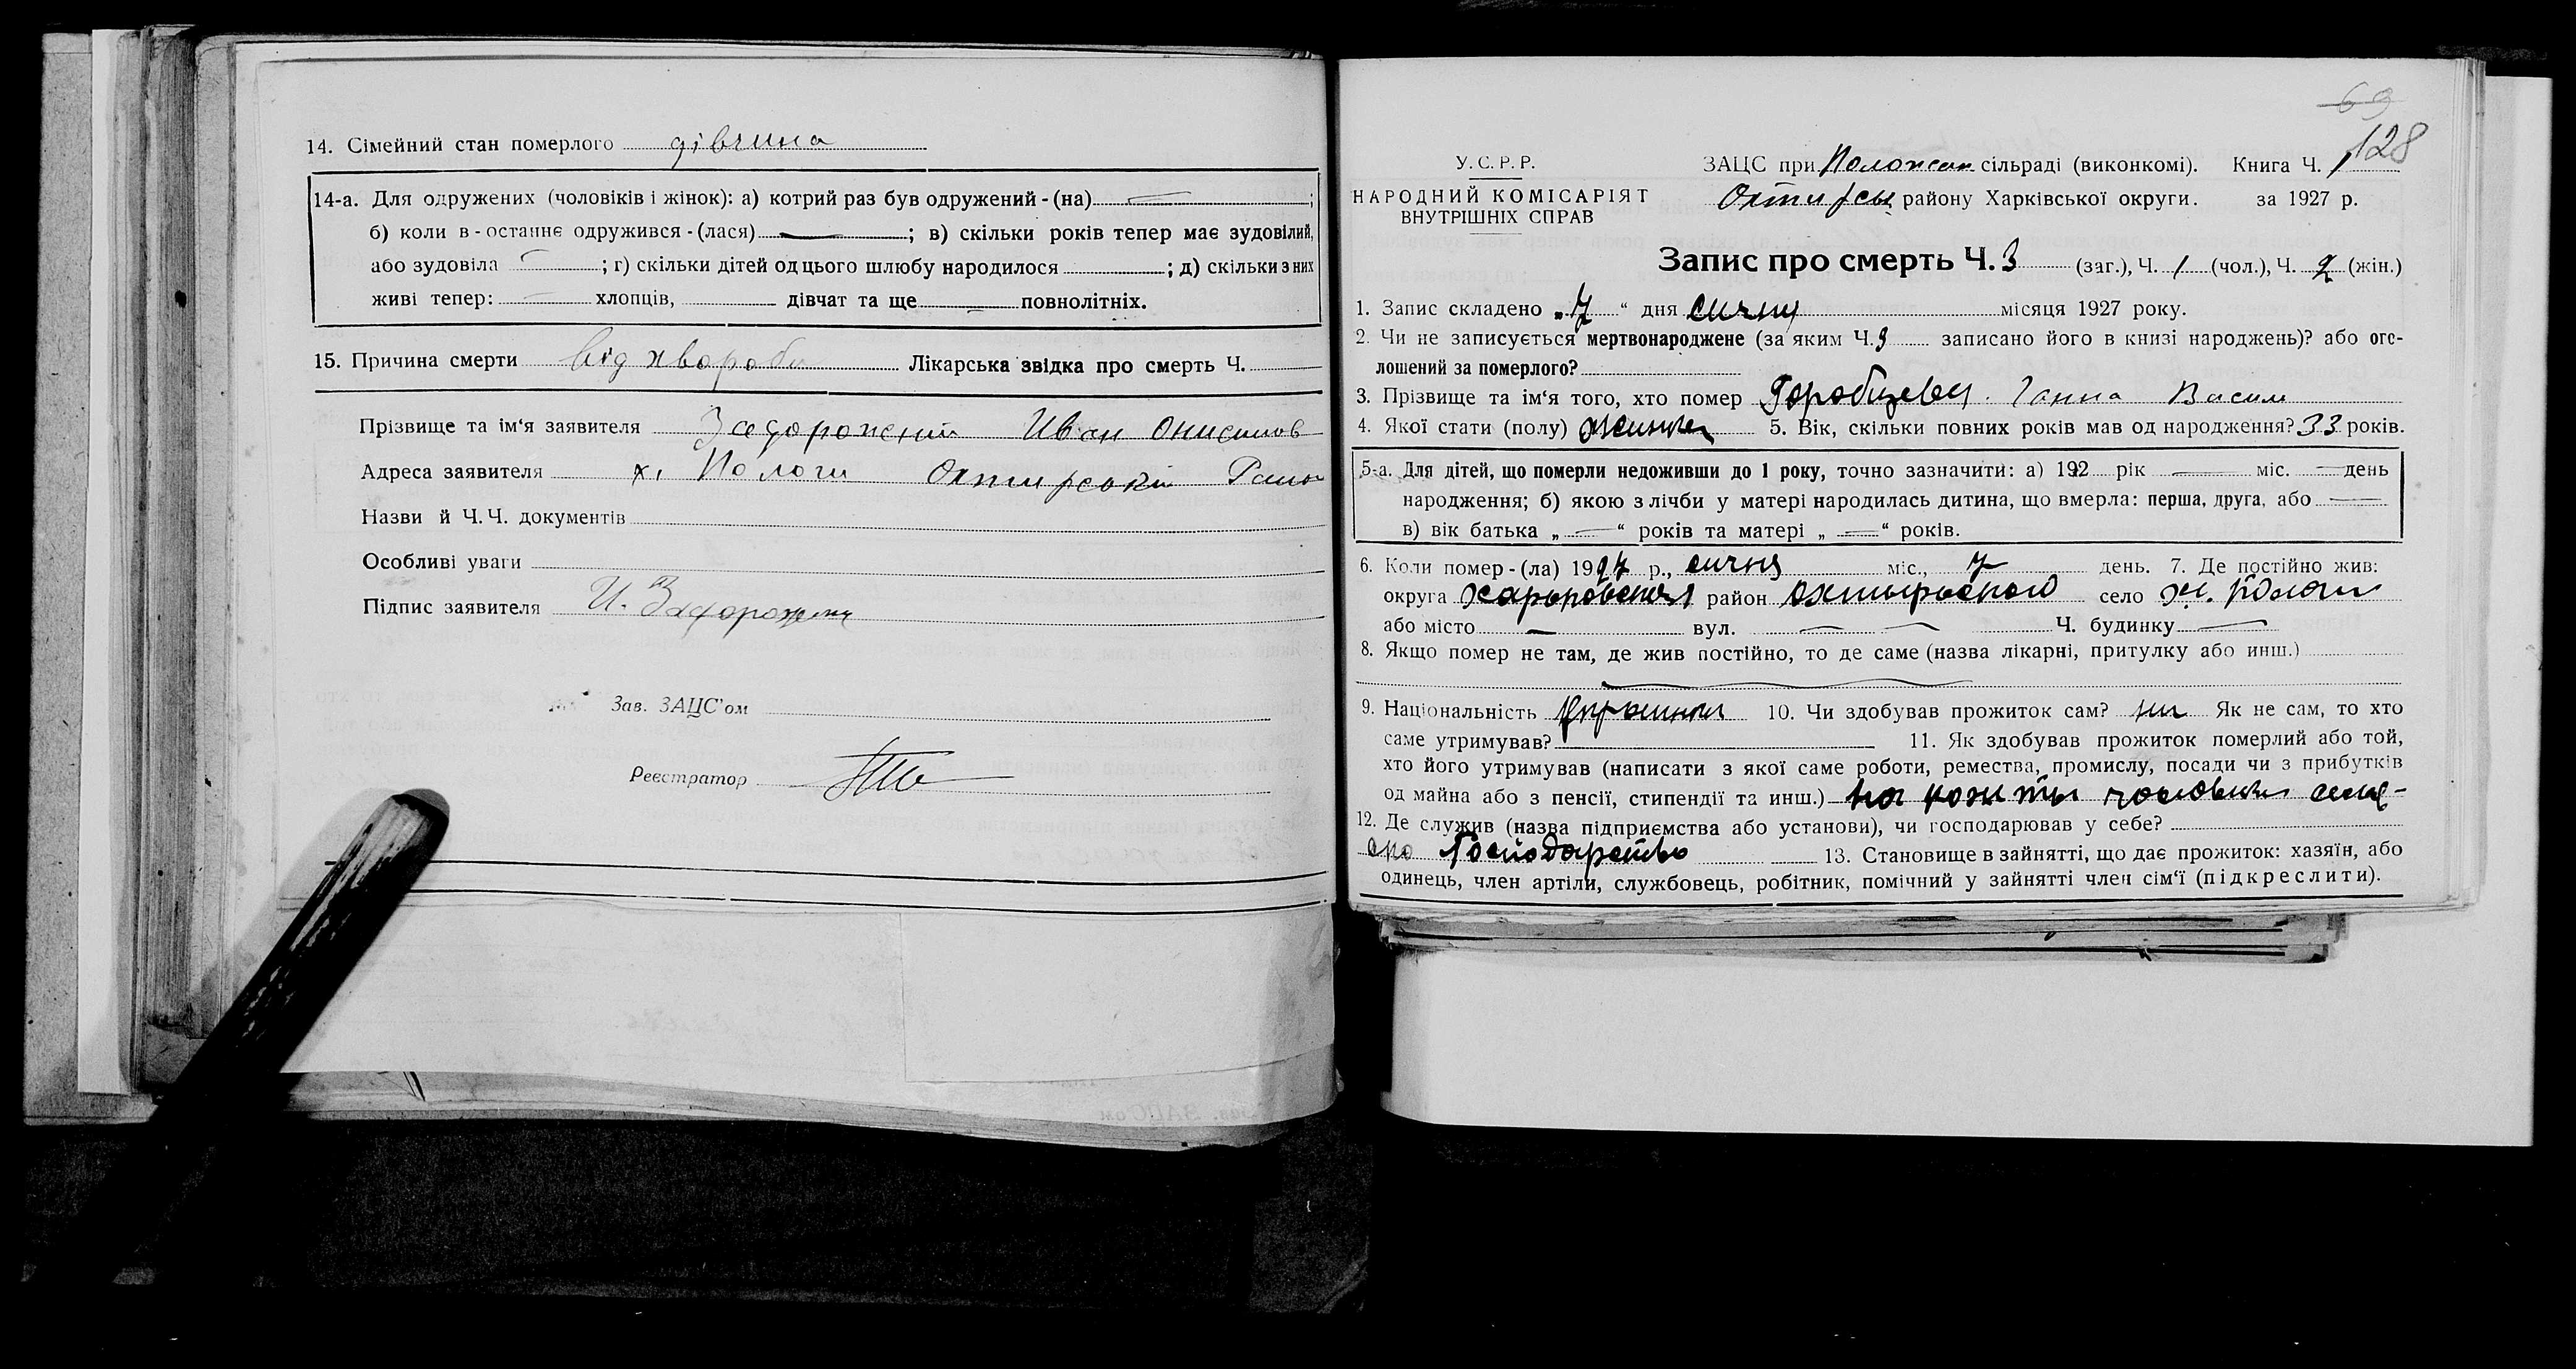 14. Сімейний стан померлого дівчина
14-а. Для одружених (чоловіків і жінок): а) котрий раз був одружений-(на) — ;
б) коли в-останнє одружився-(лася) — ; в) скільки років тепер має зудовілий,
або зудовіла — ; г) скільки дітей од цього шлюбу народилося ; д) скільки з них
живі тепер: — хлопців, дівчат та ще — повнолітніх.
15. Причина смерти від хвороби Лікарська звідка про смерть Ч.
Прізвище та ім‘я заявителя Задорожний Иван Онисимов
Адреса заявителя х. Пологи Охтирський Район
Назви й Ч.Ч. документів
Особливі уваги
Підпис заявителя И. Задорожний
Зав. ЗАЦС'ом
Реєстратор
69
128
У.С.Р.Р.
НАРОДНИЙ КОМІСАРІЯТ
ВНУТРІШНІХ СПРАВ
ЗАЦС при сільраді (виконкомі). Книга Ч. 1
Охтирськ району Харківської округи. за 1927 р.
Запис про смерть Ч. 3 (заг.), Ч. 1 (чол.), Ч. 2 (жін.)
1. Запис складено „7“ дня сичня місяця 1927 року.
2. Чи не записується мертвонароджене (за яким Ч. записано його в книзі народжень)? або ого-
лошений за померлого?
3. Прізвище та ім‘я того, хто помер Горобцева Ганна Васил
4. Якої стати (полу) жинка 5. Вік, скільки повних років мав од народження? 33 років.
5-а. Для дітей, що померли недоживши до 1 року, точно зазначити: а) 192 рік — міс. — день
народження; б) якою з лічби у матері народилась дитина, що вмерла: перша, друга, або —
в) вік батька „—“ років та матері „—“ років.
6. Коли помер-(ла) 1927 р., сичня міс., 7 день. 7. Де постійно жив:
округа район охтырского село х. Пологи
або місто — вул. — — Ч. будинку —
8. Якщо помер не там, де жив постійно, то де саме (назва лікарні, притулку або инш.)
9. Національність 10. Чи здобував прожиток сам? ни Як не сам, то хто
саме утримував? 11. Як здобував прожиток померлий або той,
хто його утримував (написати з якої саме роботи, ремества, промислу, посади чи з прибутків
од майна або з пенсії, стипендії та инш.) на
12. Де служив (назва підприємства або установи), чи господарював у себе?
Господарство 13. Становище в зайнятті, що дає прожиток: хазяїн, або
одинець, член артіли, службовець, робітник, помічний у зайнятті член сім‘ї (підкреслити).